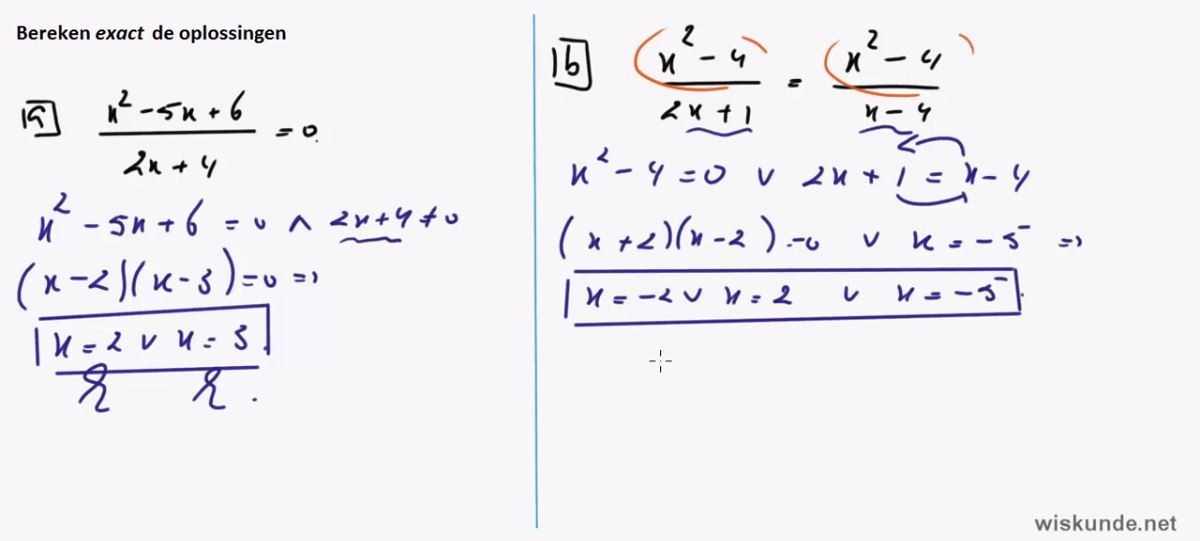 Bereken exact de oplossingen
1a
x² - 5x + 6 / 2x + 4 = 0
x² - 5x + 6 = 0 ∧ 2x + 4 ≠ 0
(x - 2)(x - 3) = 0 ⇒
x = 2 ∨ x = 3
1b
x² - 4 / 2x + 1 = x² - 4 / x - 4
x² - 4 = 0 ∨ 2x + 1 = x - 4
(x + 2)(x - 2) = 0 ∨ x = -5 ⇒
x = -2 ∨ x = 2 ∨ x = -5
wiskunde.net